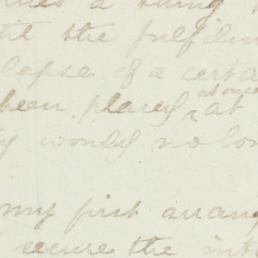 til the fulfilm
lapse of a certa
at once
been placed, at
y would no lon
my first arrang
secure the int